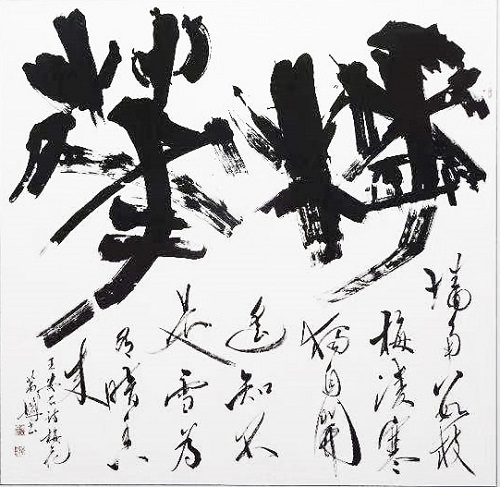 梅華
墙角数枝
梅凌寒
獨自開
遥知不
是雪為
有暗香
来
王安石诗梅花